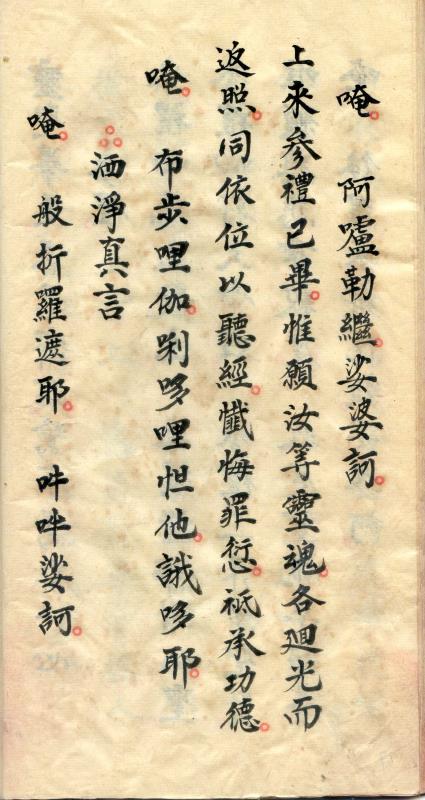 唵。 阿嚧勒繼娑婆訶。
上來參禮已畢。惟願汝等靈魂。各迴光而
返照。同依位以聽經。懺悔罪愆。祇承功德。
唵。 布步哩伽唎哆哩怛他。誐哆耶。
洒淨真言
唵。 般折羅遮耶。 吽吽娑訶。